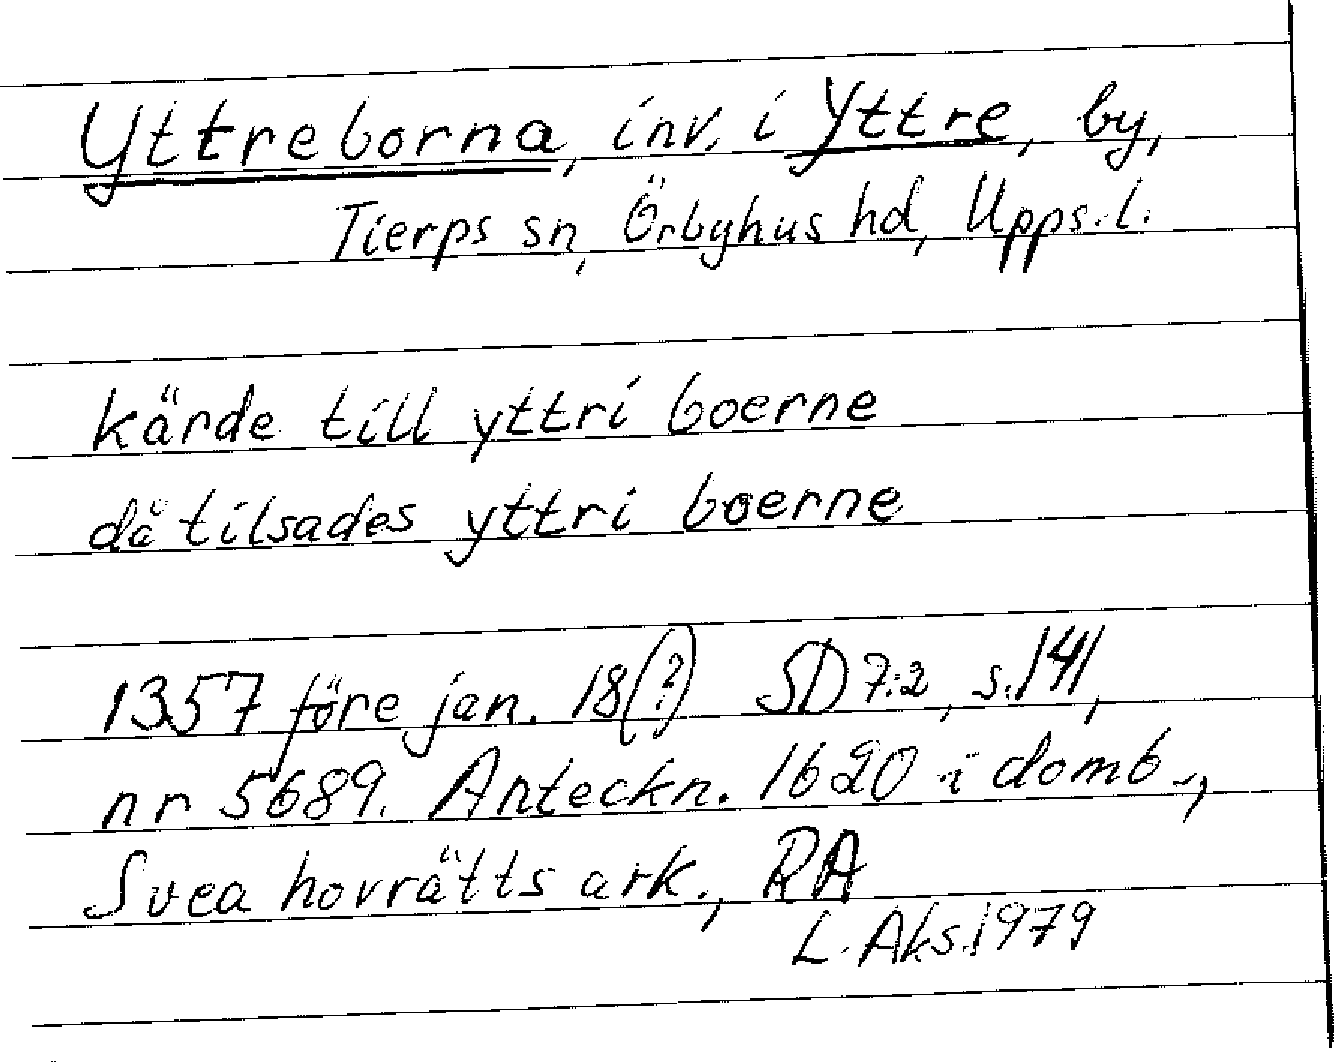 Yttreborna, inv. i Yttre, by,
Tierps sn, Örbyhus hd, Upps. l.
kärde till yttri boerne
då tilsades yttri boerne
1357 före jan. 18(?) SD 7:2, s. 141,
nr 5689. Anteckn. 1620 i domb.,
Svea hovrätts ark., RA
L. Aks. 1979